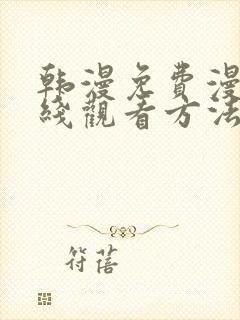 韩漫免費漫
綫觀看方法
符蓓